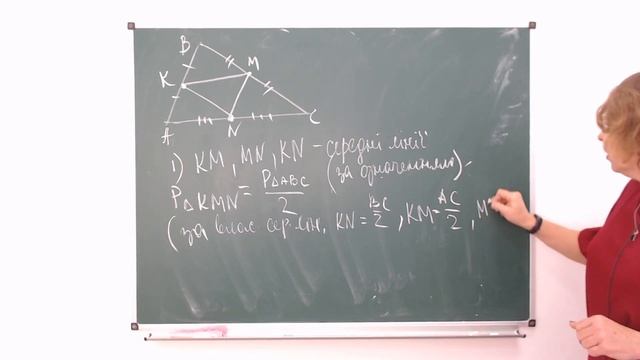 B
K
M
A
N
C
1) KM, MN, KN - середні лінії
(за означенням).
P△KMN = P△ABC / 2
(за власт. сер. лін, KN = BC/2, KM = AC/2, M